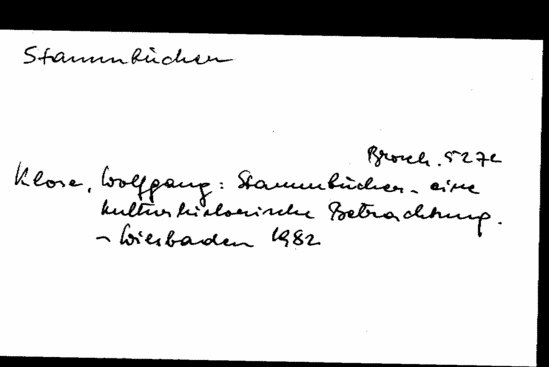 Stammbücher
Brosch. 5272
Klose, Wolfgang: Stammbücher - eine
kulturhistorische Betrachtung.
- Wiesbaden 1982